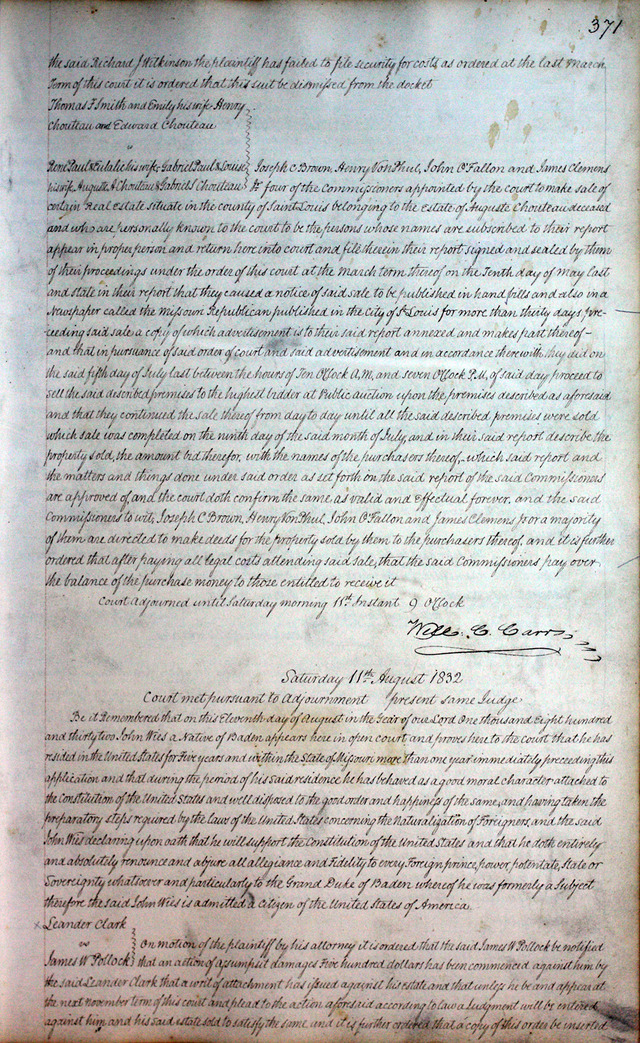 371
the said Richard J Wilkinson the plaintiff has failed to file security for costs as ordered at the last March
Term of this court it is ordered that this suit be dismissed from the docket
Thomas F Smith and Emily his wife Henry
Chouteau and Edward Chouteau
vs
René Paul & Eulalie his wife Gabriel Paul & Louise Joseph C Brown, Henry Von Phul, John O'Fallon and James Clemens
his wife Auguste A Chouteau & Gabriel S Chouteau Jr four of the Commissioners appointed by the court to make sale of
certain Real Estate situate in the county of Saint Louis belonging to the Estate of Auguste Chouteau deceased
and who are personally known to the court to be the persons whose names are subscribed to their report
appear in proper person and return here into court and file therein their report signed and sealed by them
of their proceedings under the order of this court at the March term thereof on the Tenth day of May last
and state in their report that they caused a notice of said sale to be published in hand bills and also in a
Newspaper called the Missouri Republican published in the city of St Louis for more than thirty days, pre-
ceeding said sale a copy of which advertisement is to their said report annexed and makes part thereof—
and that in pursuance of said order of court and said advertisement and in accordance therewith they did on
the said fifth day of July last between the hours of Ten O'Clock A.M. and Seven O'Clock P.M. of said day proceed to
sell the said described premises to the highest bidder at Public auction upon the premises described as aforesaid
and that they continued the sale thereof from day to day until all the said described premises were sold
which sale was completed on the ninth day of the said month of July, and in their said report describe the
property sold, the amount bid therefor, with the names of the purchasers thereof,- which said report and
the matters and things done under said order as set forth on the said report of the said Commissioners
are approved of and the court doth confirm the same as valid and Effectual forever, and the said
Commissioners to wit, Joseph C Brown, Henry Von Phul, John O'Fallon and James Clemens jr or a majority
of them are directed to make deeds for the property sold by them to the purchasers thereof, and it is further
ordered that after paying all legal costs attending said sale, that the said Commissioners pay over
the balance of the purchase money to those entitled to receive it
Court adjourned until Saturday morning 11th Instant 9 O'Clock
Will. C. Carr
Saturday 11th August 1832
Court met pursuant to adjournment present same Judge
Be it Remembered that on this Eleventh day of August in the Year of our Lord One thousand Eight hundred
and thirty two John Wies a Native of Baden appears here in open court and proves here to the court that he has
resided in the United States for Five years and within the State of Missouri more than one year immediately preceeding this
application and that during the period of his said residence he has behaved as a good moral character attached to
the Constitution of the United States and well disposed to the good order and happiness of the same, and having taken the
preparatory steps required by the Laws of the United States concerning the Naturalization of Foreigners, and the said
John Wies declaring upon oath that he will support the Constitution of the United States and that he doth entirely
and absolutely renounce and abjure all allegiance and Fidelity to every Foreign prince, power, potentate, State or
Sovereignty whatsoever and particularly to the Grand Duke of Baden whereof he was formerly a Subject
therefore the said John Wies is admitted a citizen of the United States of America.
x Leander Clark
vs On motion of the plaintiff by his attorney it is ordered that the said James W Pollock be notified
James W Pollock that an action of assumpsit damages Five hundred dollars has been commenced against him by
the said Leander Clark that a writ of attachment has issued against his estate and that unless he be and appear at
the next November term of this court and plead to the action aforesaid according to law a Judgment will be entered
against him, and his said estate sold to satisfy the same, and it is further ordered that a copy of this order be inserted